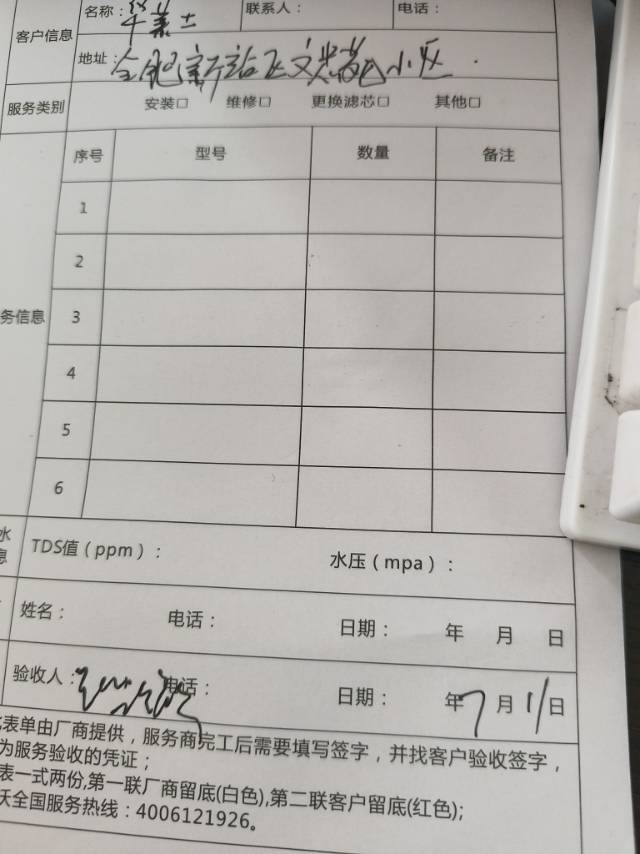 名称：
联系人：
电话：
客户信息
地址：合肥新站区文 小区
服务类别
安装□ 维修□ 更换滤芯□ 其他□
序号 型号 数量 备注
1
2
务信息 3
4
5
6
水
息
TDS值（ppm）： 水压（mpa）：
姓名： 电话： 日期： 年 月 日
验收人： 电话： 日期： 年 7 月 11 日
表单由厂商提供，服务商完工后需要填写签字，并找客户验收签字，
为服务验收的凭证；
表一式两份,第一联厂商留底(白色),第二联客户留底(红色);
沃全国服务热线：4006121926。